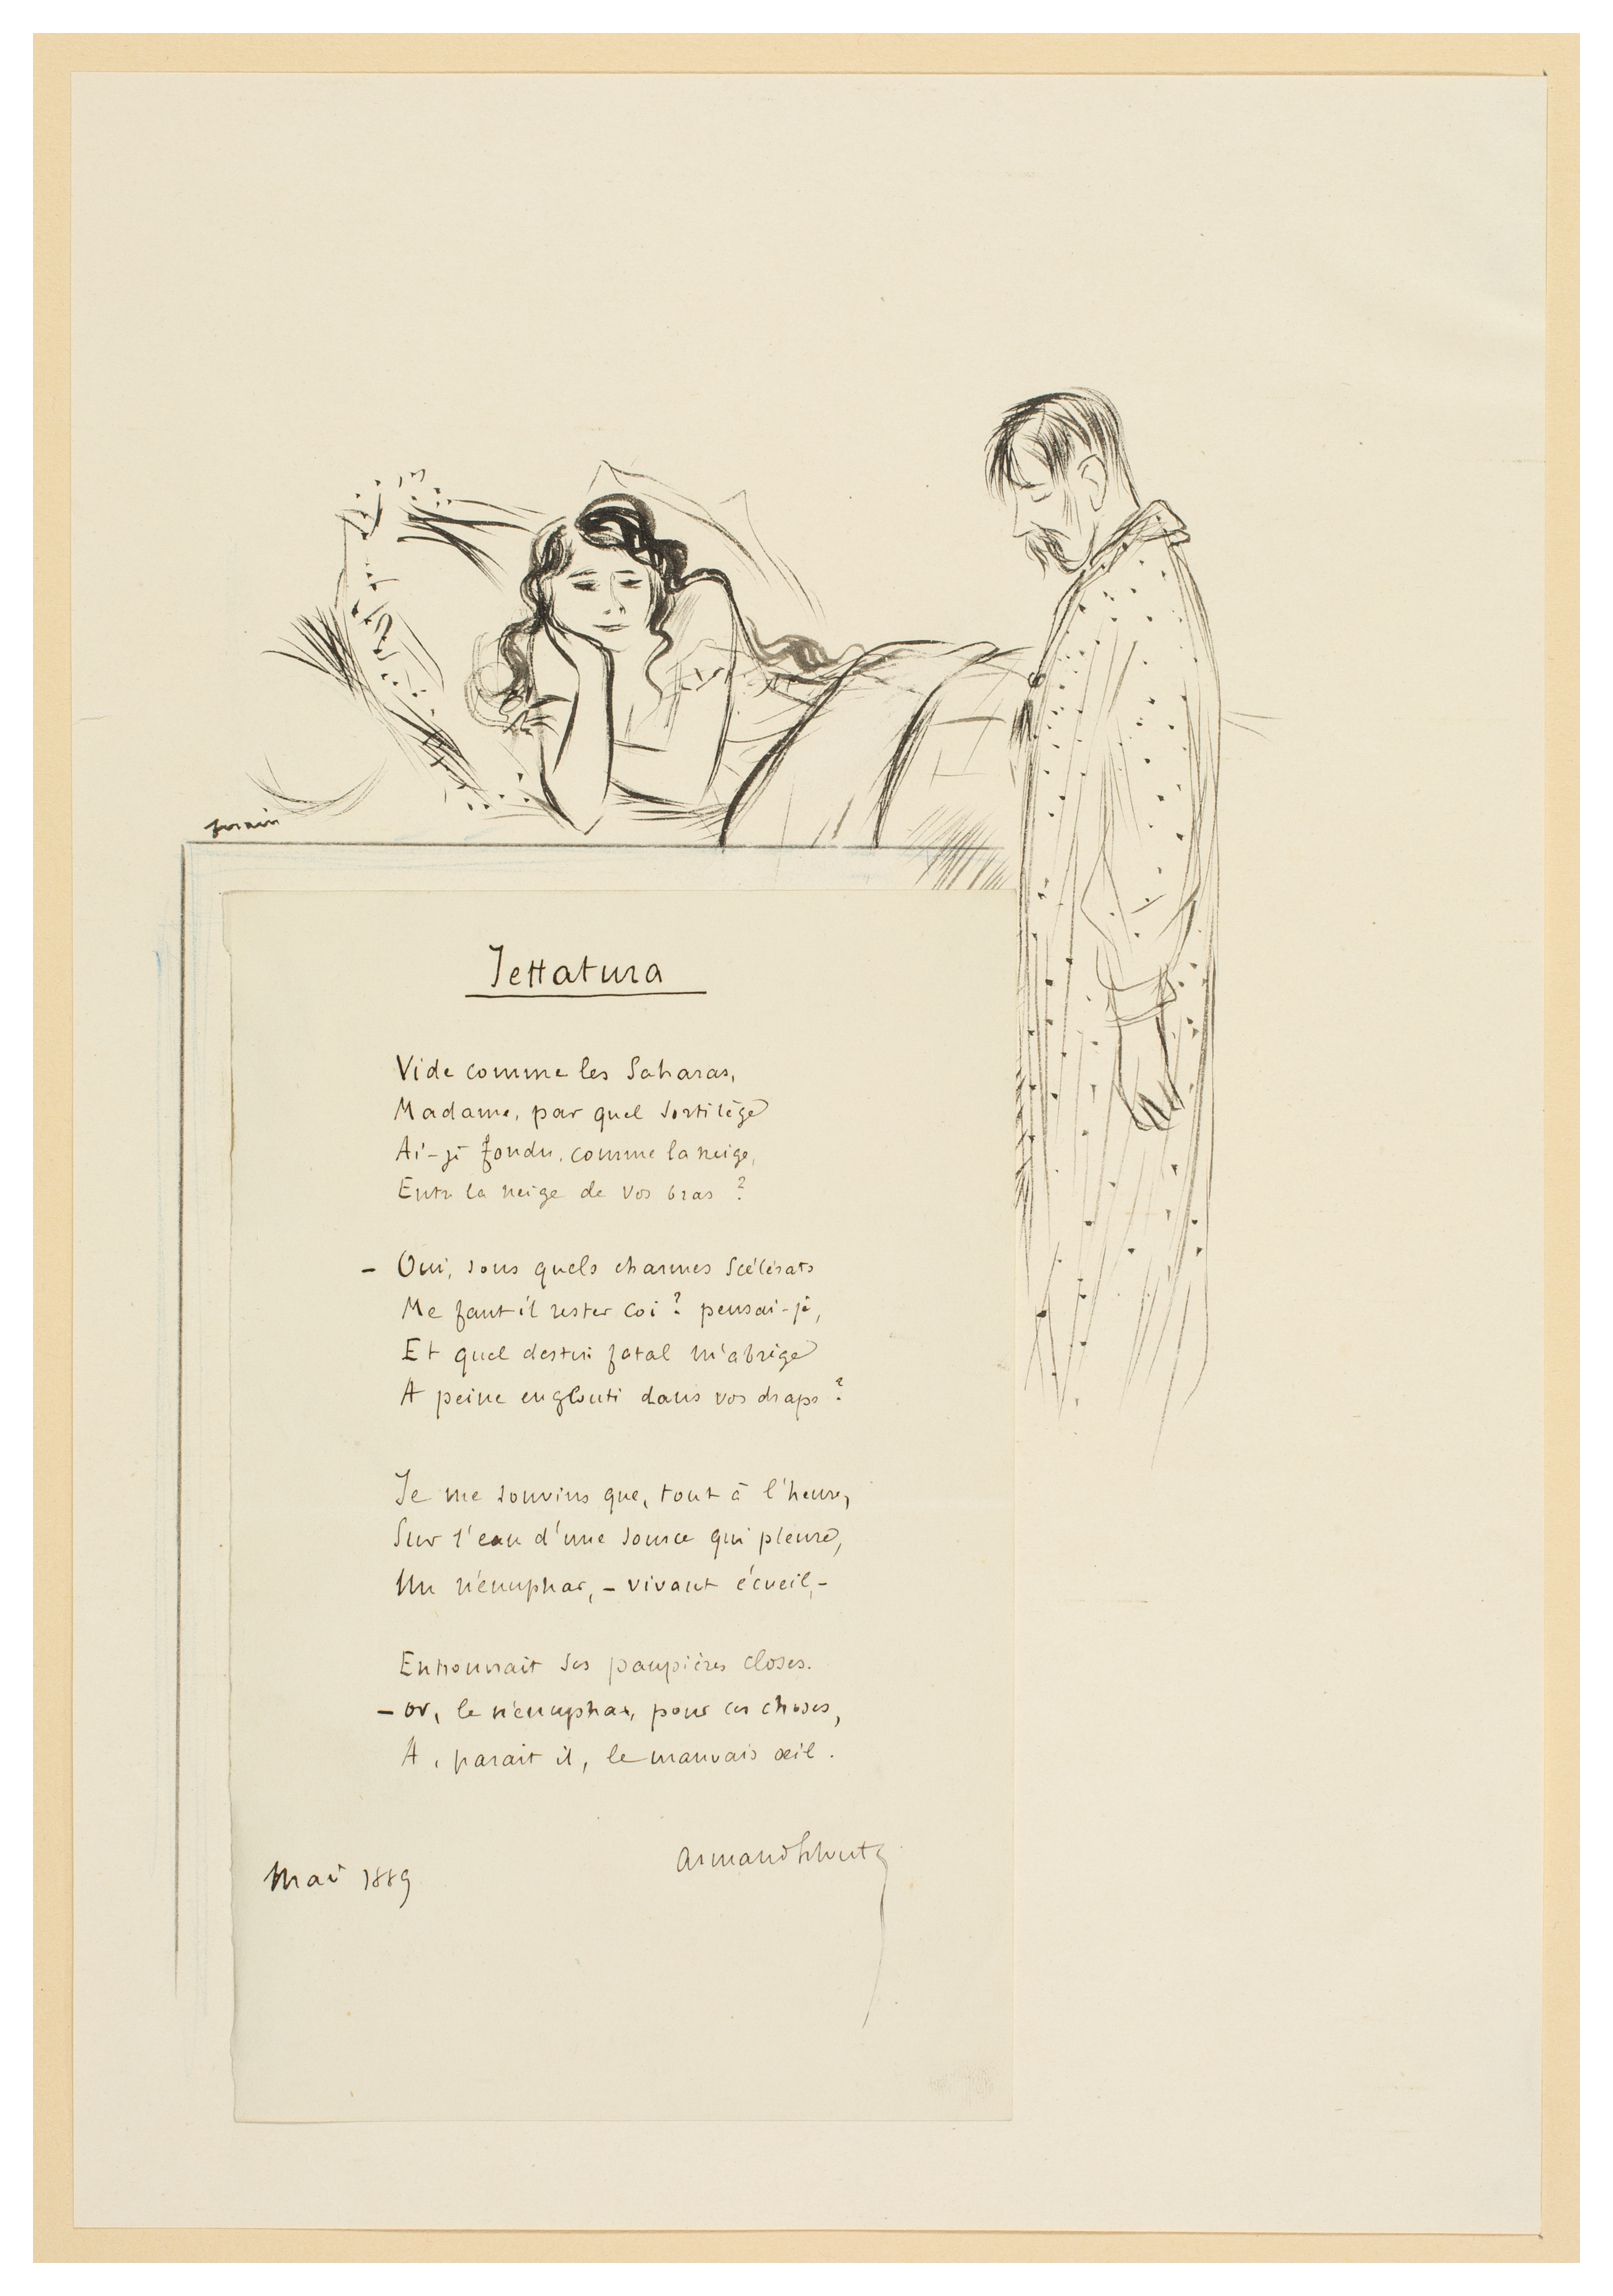 forain
Jettatura
Vide comme les Saharas,
Madame, par quel sortilège
Ai-je fondu, comme la neige,
Entre la neige de vos bras ?
- Oui, sous quels charmes scélérats
Me faut il rester coi ? pensai-je,
Et quel destin fatal m'abrège
A peine englouti dans vos draps ?
Je me souvins que, tout à l'heure,
Sur l'eau d'une source qui pleure,
Un nénuphar, - vivant écueil, -
Entrouvrait ses paupières closes.
- or, le nénuphar, pour ces choses,
A, parait il, le mauvais œil.
Armand
Mai 1889